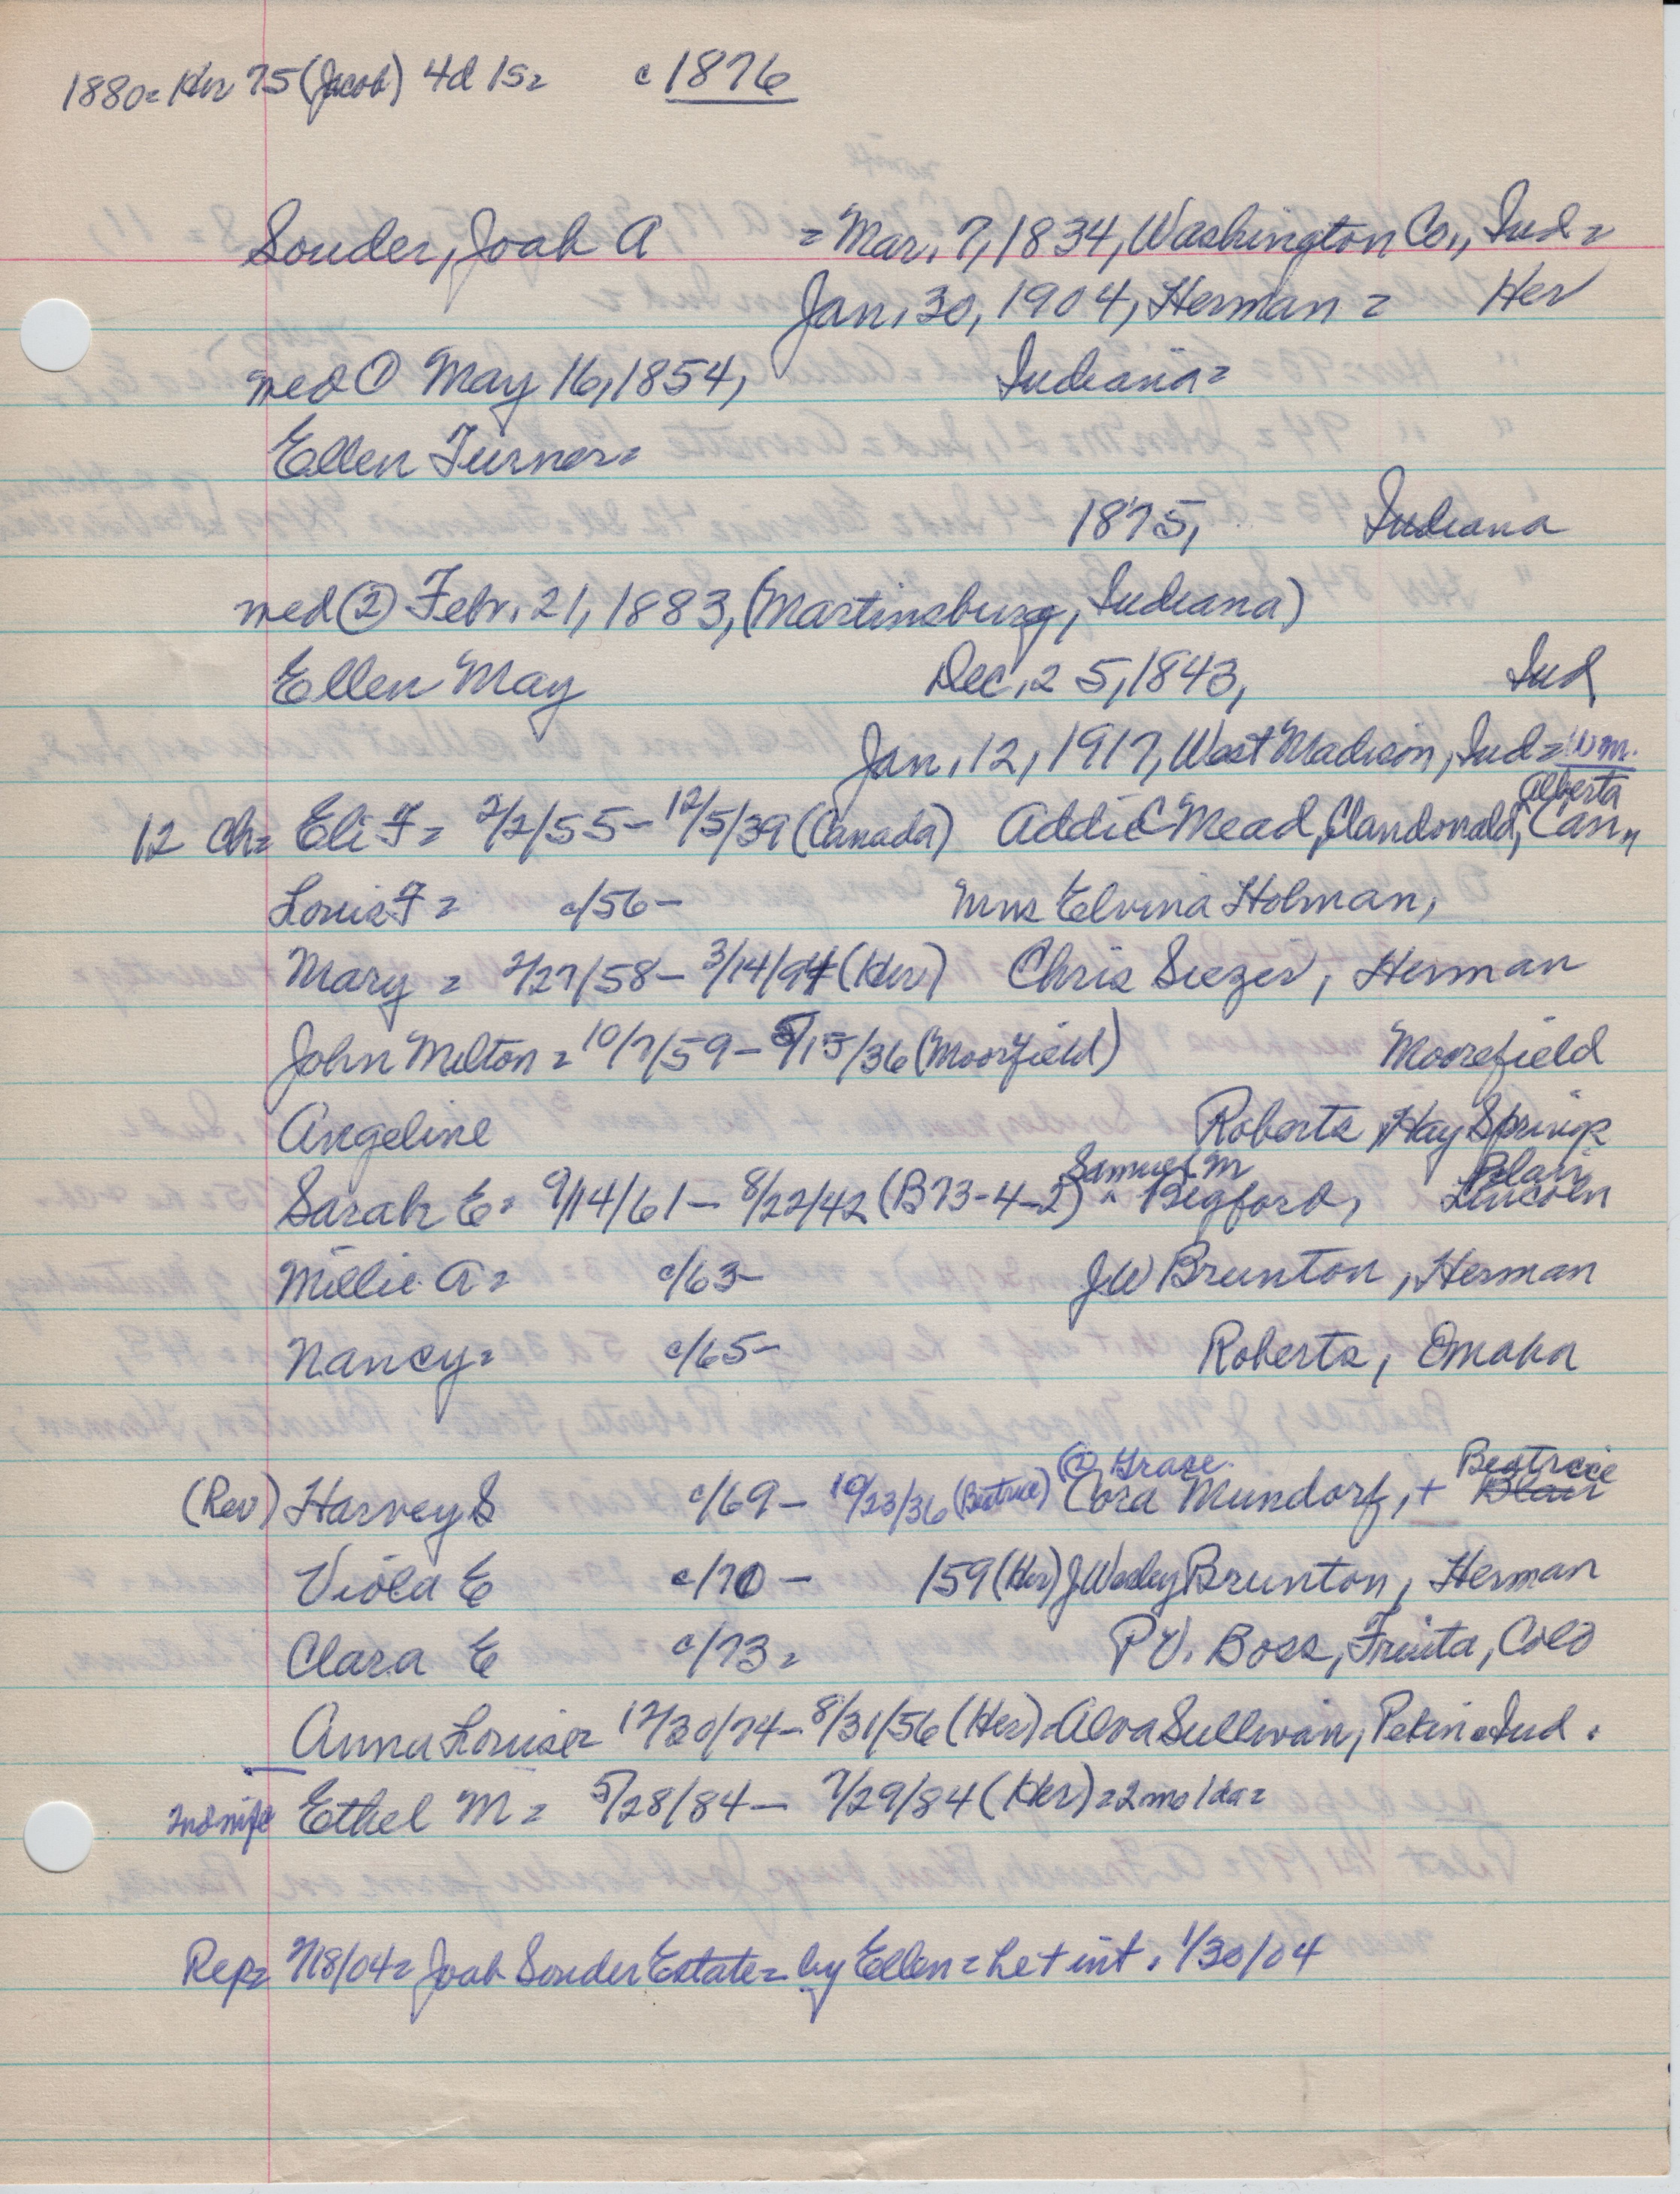 1880= Her 75 (Jacob) 4d 1s= c 1876
Souder, Joab A = Mar, 7, 1834, Washington Co., Ind=
Jan, 30, 1904, Herman = Her
med ① May 16, 1854, Indiana=
Ellen Turner=
1875, Indiana
med ② Febr. 21, 1883, (Martinsburg, Indiana)
Ellen May Dec, 25, 1843, Ind
Jan, 12, 1917, West Madison, Ind= Wm.
Alberta
12 Ch= Eli F= 2/2/55- 12/5/39 (Canada) Addie Mead, Clandonald, Can,
Louis F= c/56- Mrs Elvina Holman,
Mary = 2/27/58- 3/14/94 (Her) Chris Siezer, Herman
John Milton = 10/7/59- 5/15/36 (Moorfield) Moorefield
Angeline Roberts, Hay Springs
Samuel M Blair
Sarah E= 9/14/61- 8/22/42 (B73-4-2) ^ Bigford, Lincoln
Millie A= c/63- JW Brunton, Herman
Nancy= c/65- Roberts, Omaha
② Grace. Beatrice
(Rev) Harvey S c/69- 10/23/36 (Beatrice) Cora Mundorf, + Blair
Viola E c/70- 159 (Her) J Wesley Brunton, Herman
Clara E c/73= P V. Boss, Fruita, Colo
Anna Louise= 12/30/74- 8/31/56 (Her) Alva Sullivan, Pekin= Ind.
2nd wife Ethel M= 5/28/84- 7/29/84 (Her) = 2 mo 1 da=
Rep= 7/18/04= Joab Souder Estate= by Ellen = he + int. 1/30/04